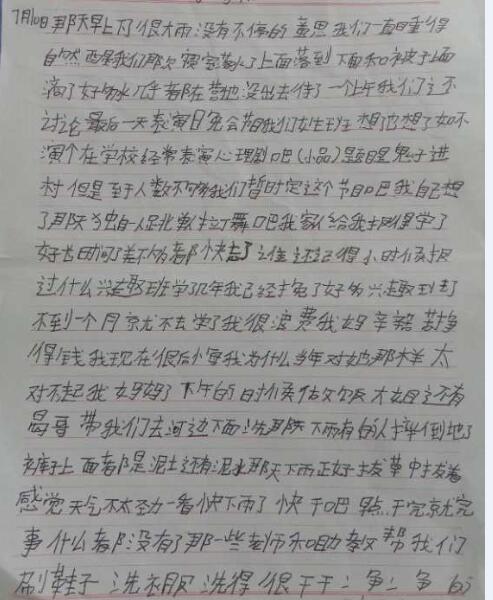 7月10日那天早上下很大雨没有不停的意思我们一直睡得
自然
我们那次寝室 水了上面落到下面和被子上面
滴了好多水几乎都在营地没出去待了一个上午我们还不
讨论最后一天表演日晚会节目我们女生班想也想了如不
演个在学校经常表演心理剧吧(小品)题目是鬼子进
村但是至于人数不够我们暂时定这个节目吧我自己想
了那天独自一人跳 舞吧我家人给我报得学了
好长时间了差不多都快忘了谁还记得小时候报
过什么兴趣班学几年我已经换了好多兴趣班到
不到一个月就不去学了我很浪费我妈辛辛苦苦挣
得钱我现在很后悔我为什么当年对她那样太
对不起我妈妈了下午的时候 大姐还有
哥带我们去河边下面洗那天下雨有的人摔倒地了
裤子上面都是泥土还有泥水那天下雨正好
感觉天气不太劲一看快下雨了快干吧早点干完就完
事什么都没有了那一些老师和助教帮我们
刷鞋子洗衣服洗得很干干净净的